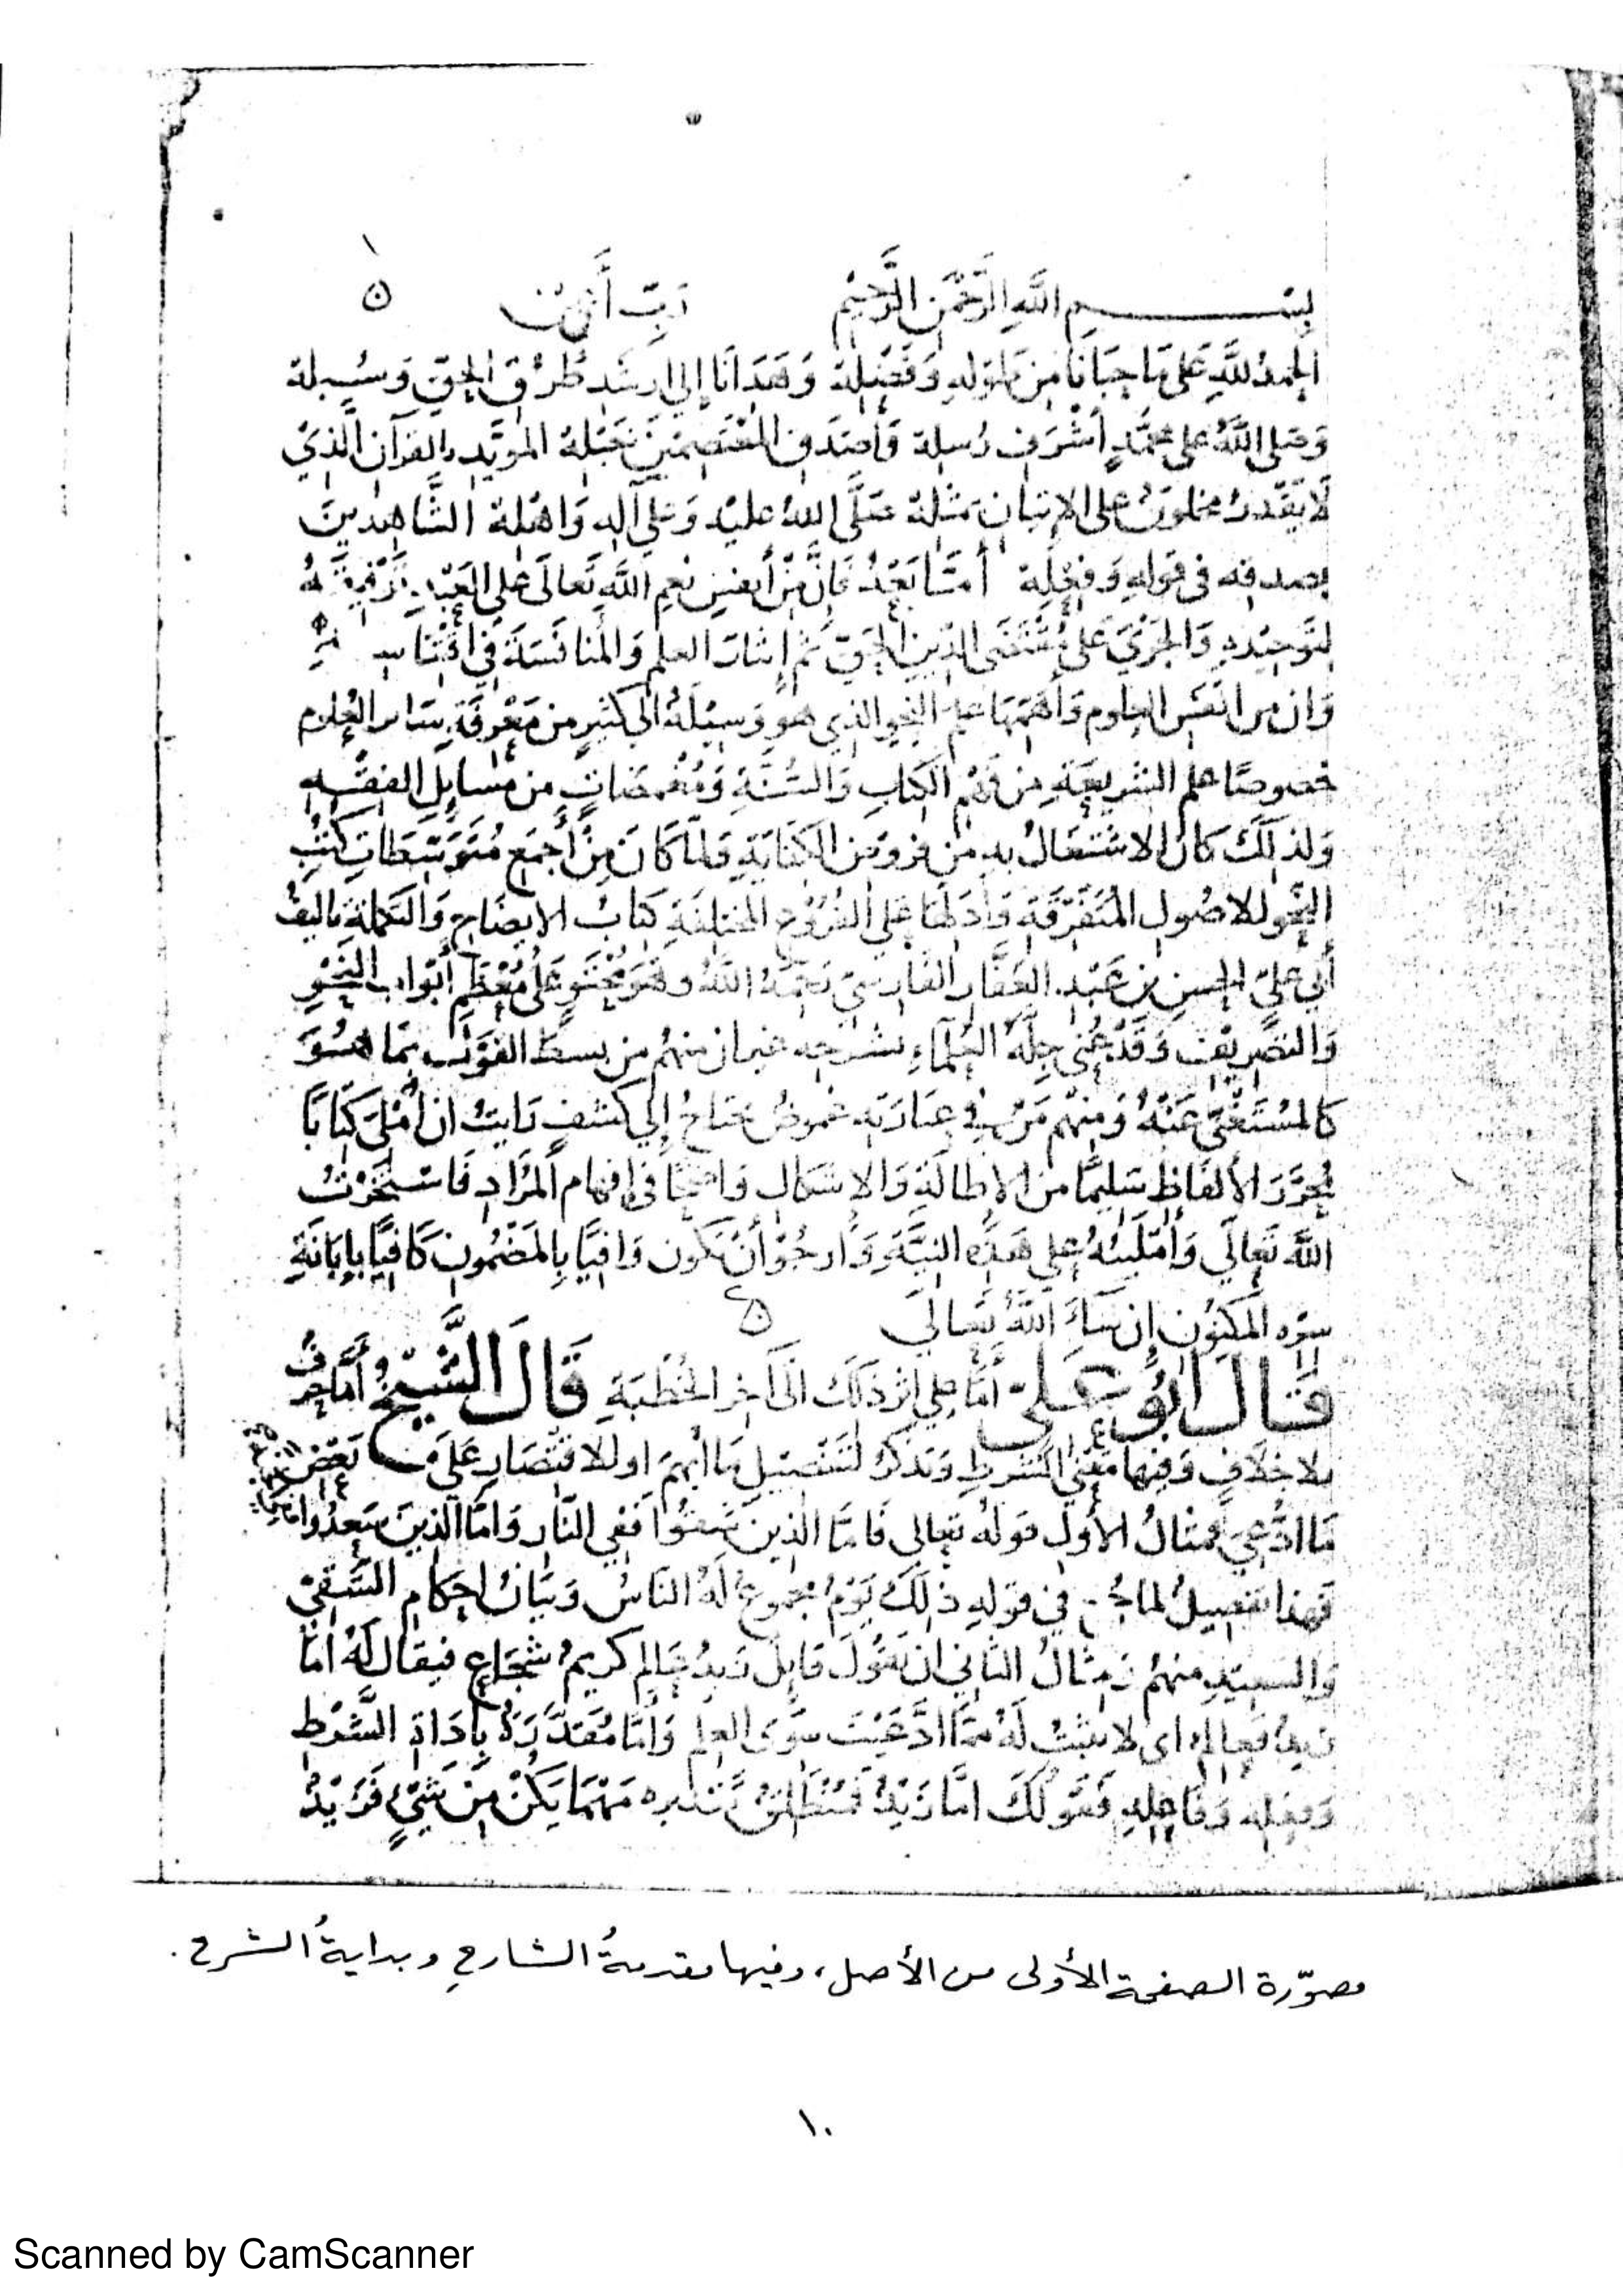 بســـم الله الرَّحمن الرَّحيم رَبِّ أَعِن
الحمد للَّهِ على مَا حبَانَا مِن طَوْلِهِ وَفَضْلِهِ وَهَدَانَا إلى ارشد طُرُق الحق وَسُبله
وَصَلى اللَّهُ على محمَّدٍ أشْرَفِ رُسله وَأصدَق المعْتَصِمِينَ بحَبْله المويَّد بالقرآن الَّذِي
لَا يَقْدرُ مخلوقٌ على الاتيان بمثله صَلَّى اللهُ عليه وَعلى آله وَاهله الشَّاهدينَ
بصدقه فى قوله وَفعْله أمَّا بَعْدُ فَإنَّ مِنْ أنفس نعم اللَّهِ تَعالَى على العَبْد
لتَوحيده وَالجَرْيَ عَلَى مُقْتَضَى الدّين الحَقّ ثم إيثار العلم وَالمُنافَسَةَ فِي اقتناسه
وَان من انفَس العلوم وَأهَمّهَا علم النحو الذي هو وَسيلَةٌ الى كثير من مَعْرفَة سَائر العُلوم
خصوصًا علم الشريعَةِ مِن فَهْم الكتاب وَالسُّنَّةِ وَمُغْمضَاتٍ من مسايل الفقْه
وَلذلكَ كانَ الاشتغالُ به من فروض الكفَايَةِ وَلمَّا كَانَ مِنْ أَجمَع مُتَوَسّطَات كتُب
النَّحو للاصُول المُتَفَرّقَة وَأدَلّهَا على الفُرُوع المختلفَةِ كتابُ الايضَاح وَالتكملة تاليفُ
أبى علىّ الحسن بن عَبْد الغَفَّار الفَارسيّ رَحمَهُ اللَّهُ وهوَ مُحْتَوٍ عَلَى مُعْظَم أبْوَاب النَّحْو
وَالتَّصريف وَقَدْ عُنىَ جلَّةُ العُلمآء بشرحه غير ان منهُم من بسط القوْل بمَا هُوَ
كالمُسْتَغْنَى عَنْهُ وَمنهُم مَنْ في عبَارَته غموضٌ يحتاجُ إلى كشف رَايتُ ان أُمْلىَ كتَابًا
مُجَرَّدَ الألفَاظ سَليمًا من الإطالَةِ وَالإشكال وَاضحًا في إفهام المُرَادِ فَاسْتَخَرْتُ
اللهَ تَعالَى وَأمْلَيتُهُ على هَذِه النيَّةِ وَأرجُوْ أنْ يَكُون وَافيًا بِالمَضْمُون كَافيًا بإبَانَةِ
سِرّه المَكنُون إن شَاءَ اللَّهُ تَعَالَى
قَالَ أَبُو عَلىّ أمَّا على اثر ذلكَ الى آخر الخُطْبَةِ قَالَ الشَّيْخُ أمَّا حرفٌ
بلا خلَافٍ وَفيها مَعْنَى الشرط وَتذكَرُ لتَفْصيل مَا أبهمَ او للاقتصَارِ عَلَى بَعْض
مَا ادُّعِيَ فمثالُ الأوَّل قولهُ تعالى فَامَّا الذينَ شَقُوا فَفي النَّار وَامَّا الَّذينَ سَعِدُوا
فهذا تفصيلٌ لما جُمع في قولهِ ذلكَ يَوْمٌ مجمُوعٌ لَهُ النَّاسُ وَبَيَانُ احكام الشَّقىّ
وَالسَّعيدِ منهُم وَمثالُ الثَّاني ان يَقُولَ قَايلٌ زَيدٌ عَالم كريمٌ شجَاع فيقال لَهُ امَّا
زيدٌ فعالمٌ اى لا يثبتُ لَهُ ممَّا ادَّعَيْتَ سوَى العلم وَامَّا مُقَدَّرَةٌ بِادَاةِ الشَّرْط
وَفعله وَفَاعِله فَقَوْلُكَ امَّا زَيْدٌ فمُنْطَلقٌ تقديره مَهْمَا يَكُنْ مِنْ شَيْءٍ فَزَيْدٌ
مصوّرة الصفحة الأولى من الأصل، وفيها مقدمةُ الشارحِ وبدايةُ الشرح.
١٠
Scanned by CamScanner